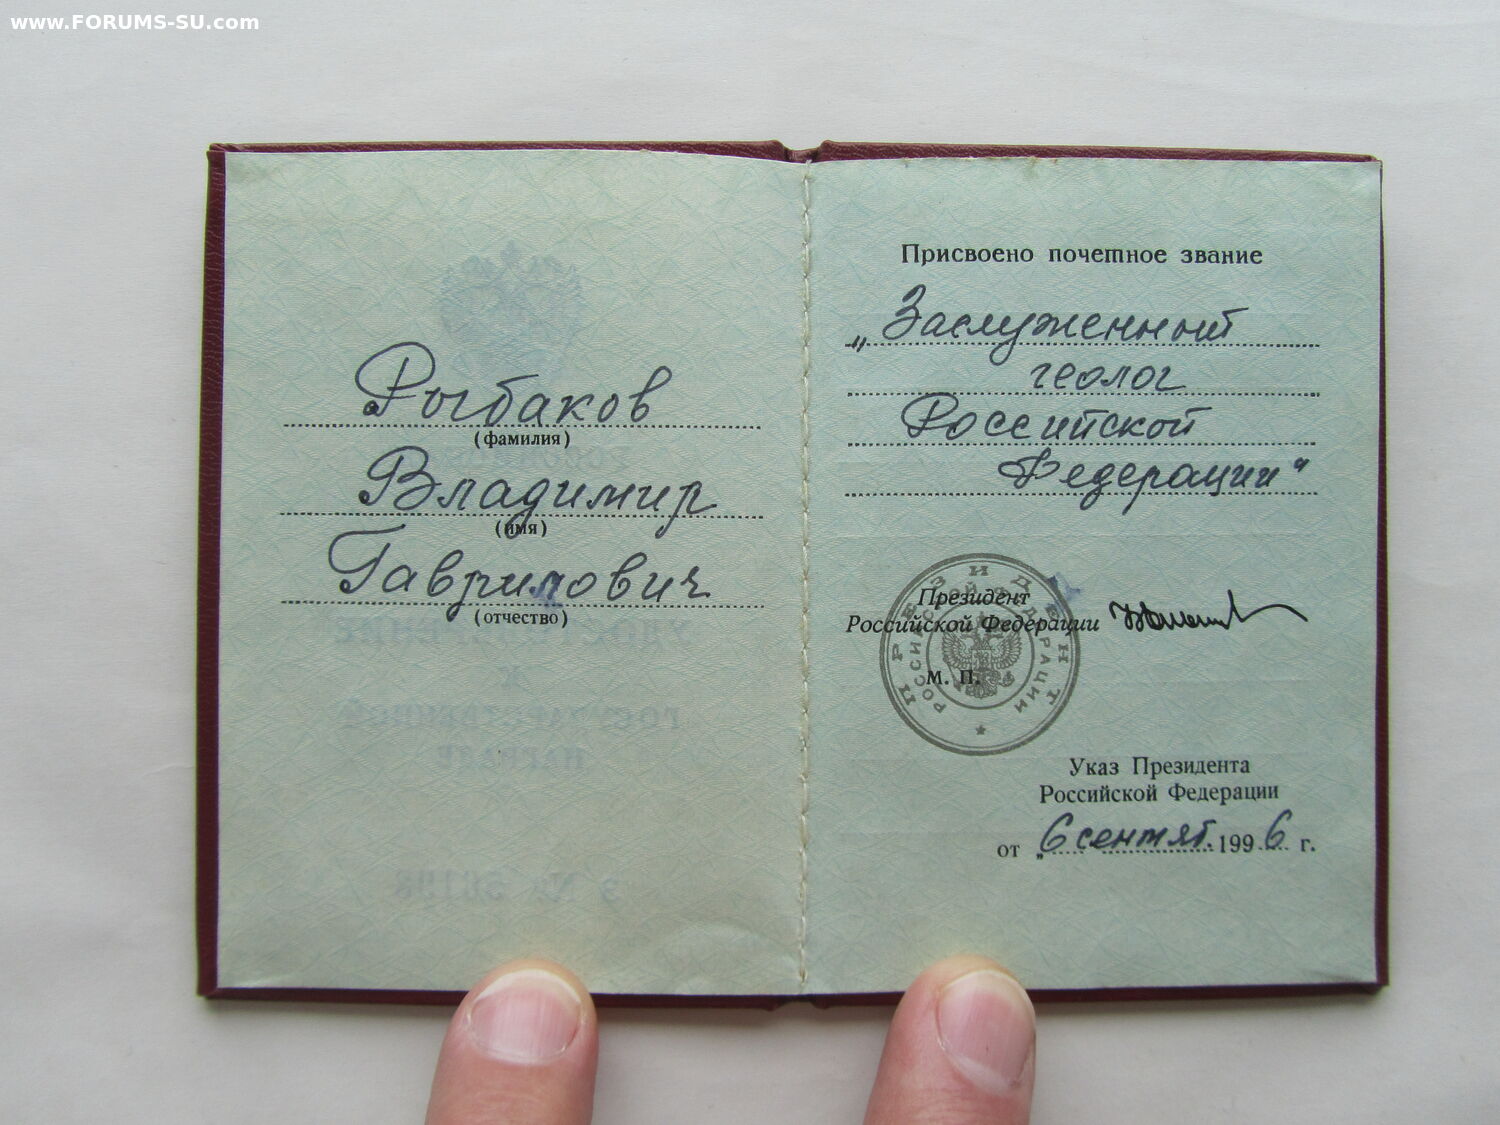 www.FORUMS-SU.com
Рыбаков
(фамилия)
Владимир
(имя)
Гаврилович
(отчество)
Присвоено почетное звание
„Заслуженный
геолог
Российской
Федерации“
Президент
Российской Федерации
М. П.
ПРЕЗИДЕНТ
РОССИЙСКОЙ ФЕДЕРАЦИИ
Указ Президента
Российской Федерации
от „6 сентяб. 1996 г.